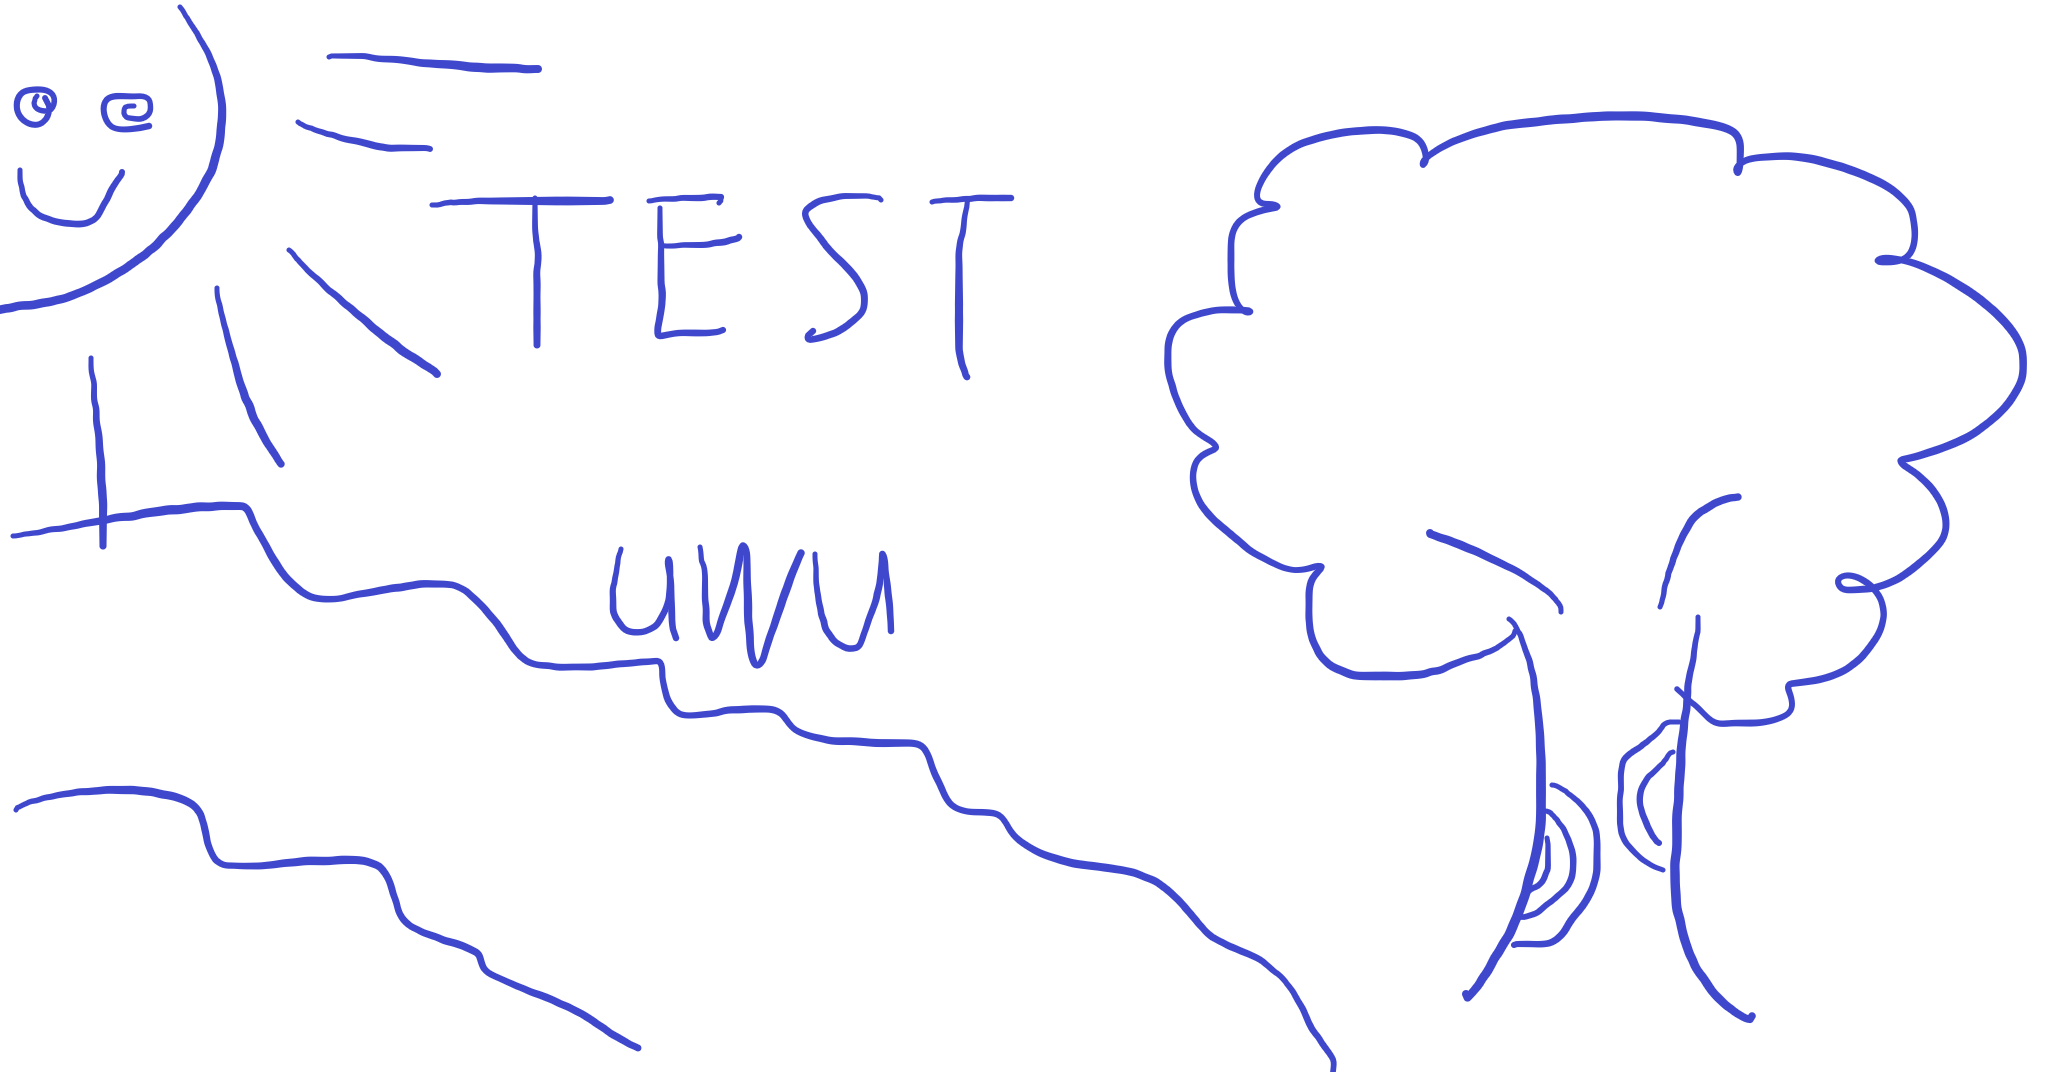 TEST
UWU